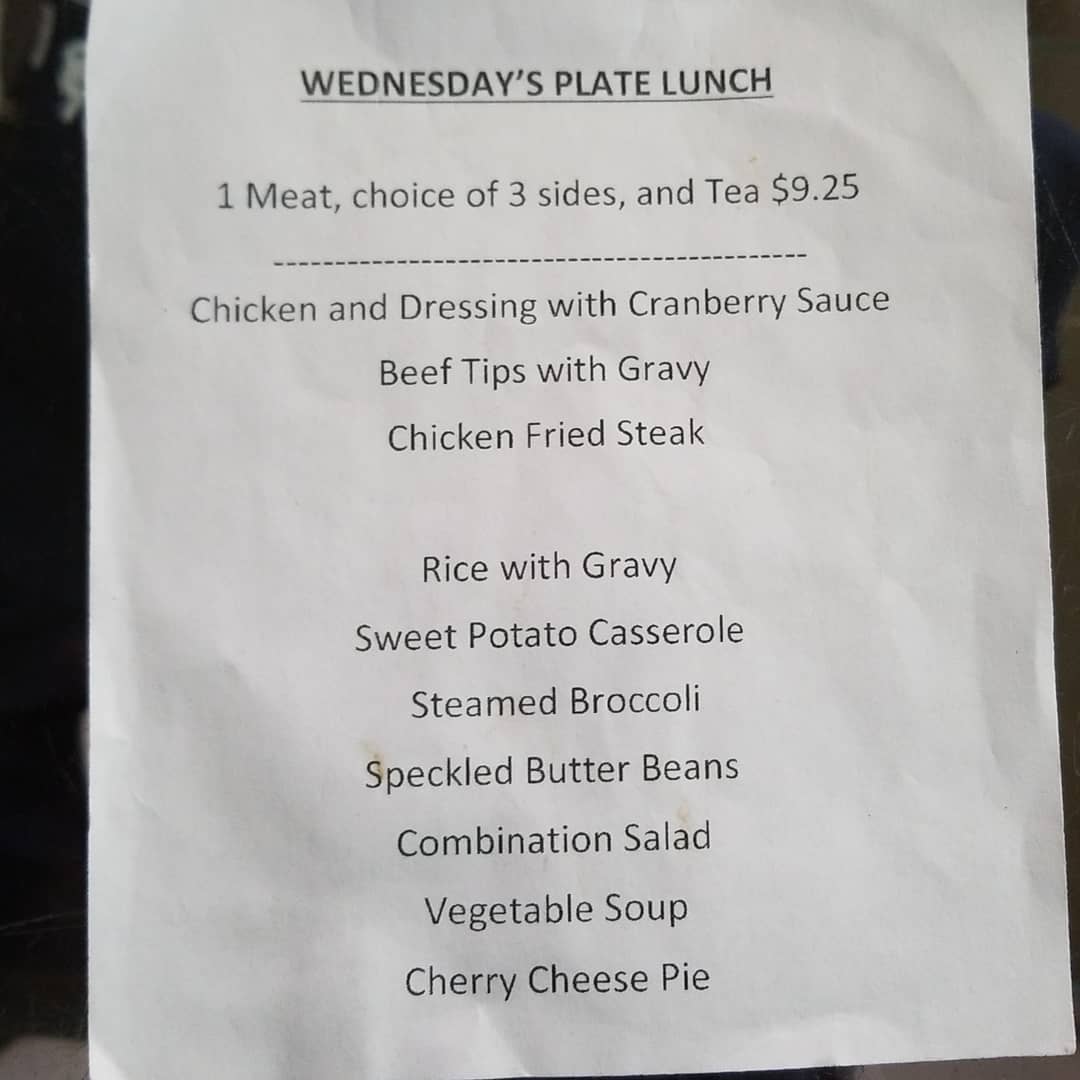 WEDNESDAY’S PLATE LUNCH
1 Meat, choice of 3 sides, and Tea $9.25
-------------------------------------------
Chicken and Dressing with Cranberry Sauce
Beef Tips with Gravy
Chicken Fried Steak
Rice with Gravy
Sweet Potato Casserole
Steamed Broccoli
Speckled Butter Beans
Combination Salad
Vegetable Soup
Cherry Cheese Pie